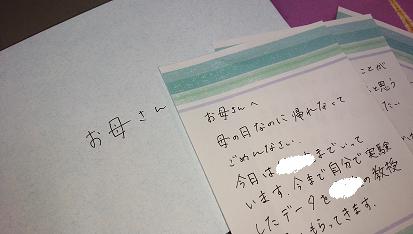 お母さん
お母さんへ
母の日なのに帰れなくって
ごめんなさい.
今日は までいって
います. 今まで自分で実験
したデータを の教授
もらってきます.
ことが
と思う
たい